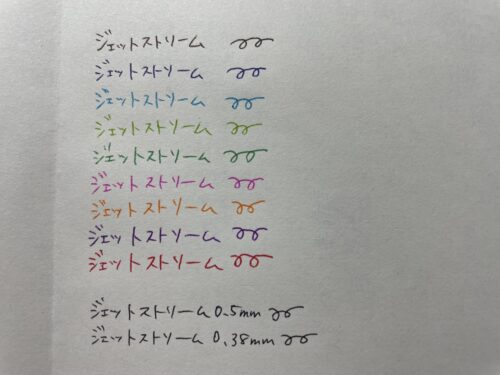 ジェットストリーム
ジェットストリーム
ジェットストリーム
ジェットストリーム
ジェットストリーム
ジェットストリーム
ジェットストリーム
ジェットストリーム
ジェットストリーム
ジェットストリーム 0.5mm
ジェットストリーム 0.38mm